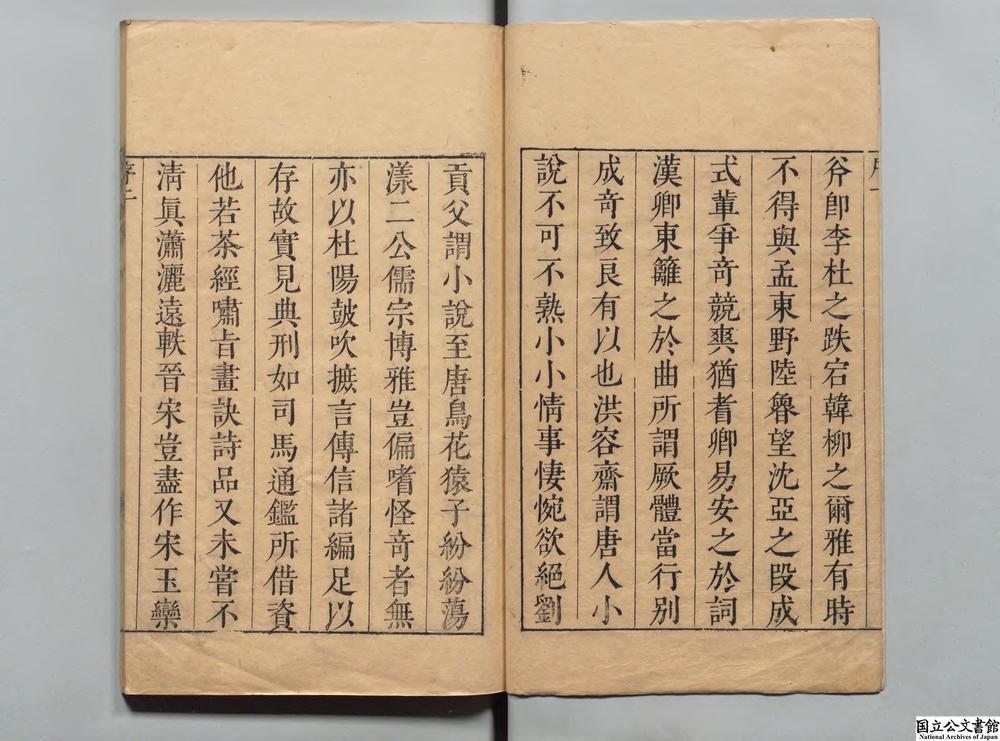 斧卽李杜之跌宕韓柳之爾雅有時
不得與孟東野陸魯望沈亞之段成
式軰爭竒競爽猶耆卿易安之於詞
漢卿東籬之於曲所謂厥體當行别
成竒致良有以也洪容齋謂唐人小
說不可不熟小小情事悽惋欲絕劉
貢父謂小說至唐鳥花猿子紛紛蕩
漾二公儒宗博雅豈偏嗜怪竒者無
亦以杜陽皷吹摭言傳信諸編足以
存故實見典刑如司馬通鑑所借資
他若茶經嘯旨畫訣詩品又未嘗不
淸眞瀟灑遠軼晉宋豈盡作宋玉欒
序二
国立公文書館
National Archives of Japan